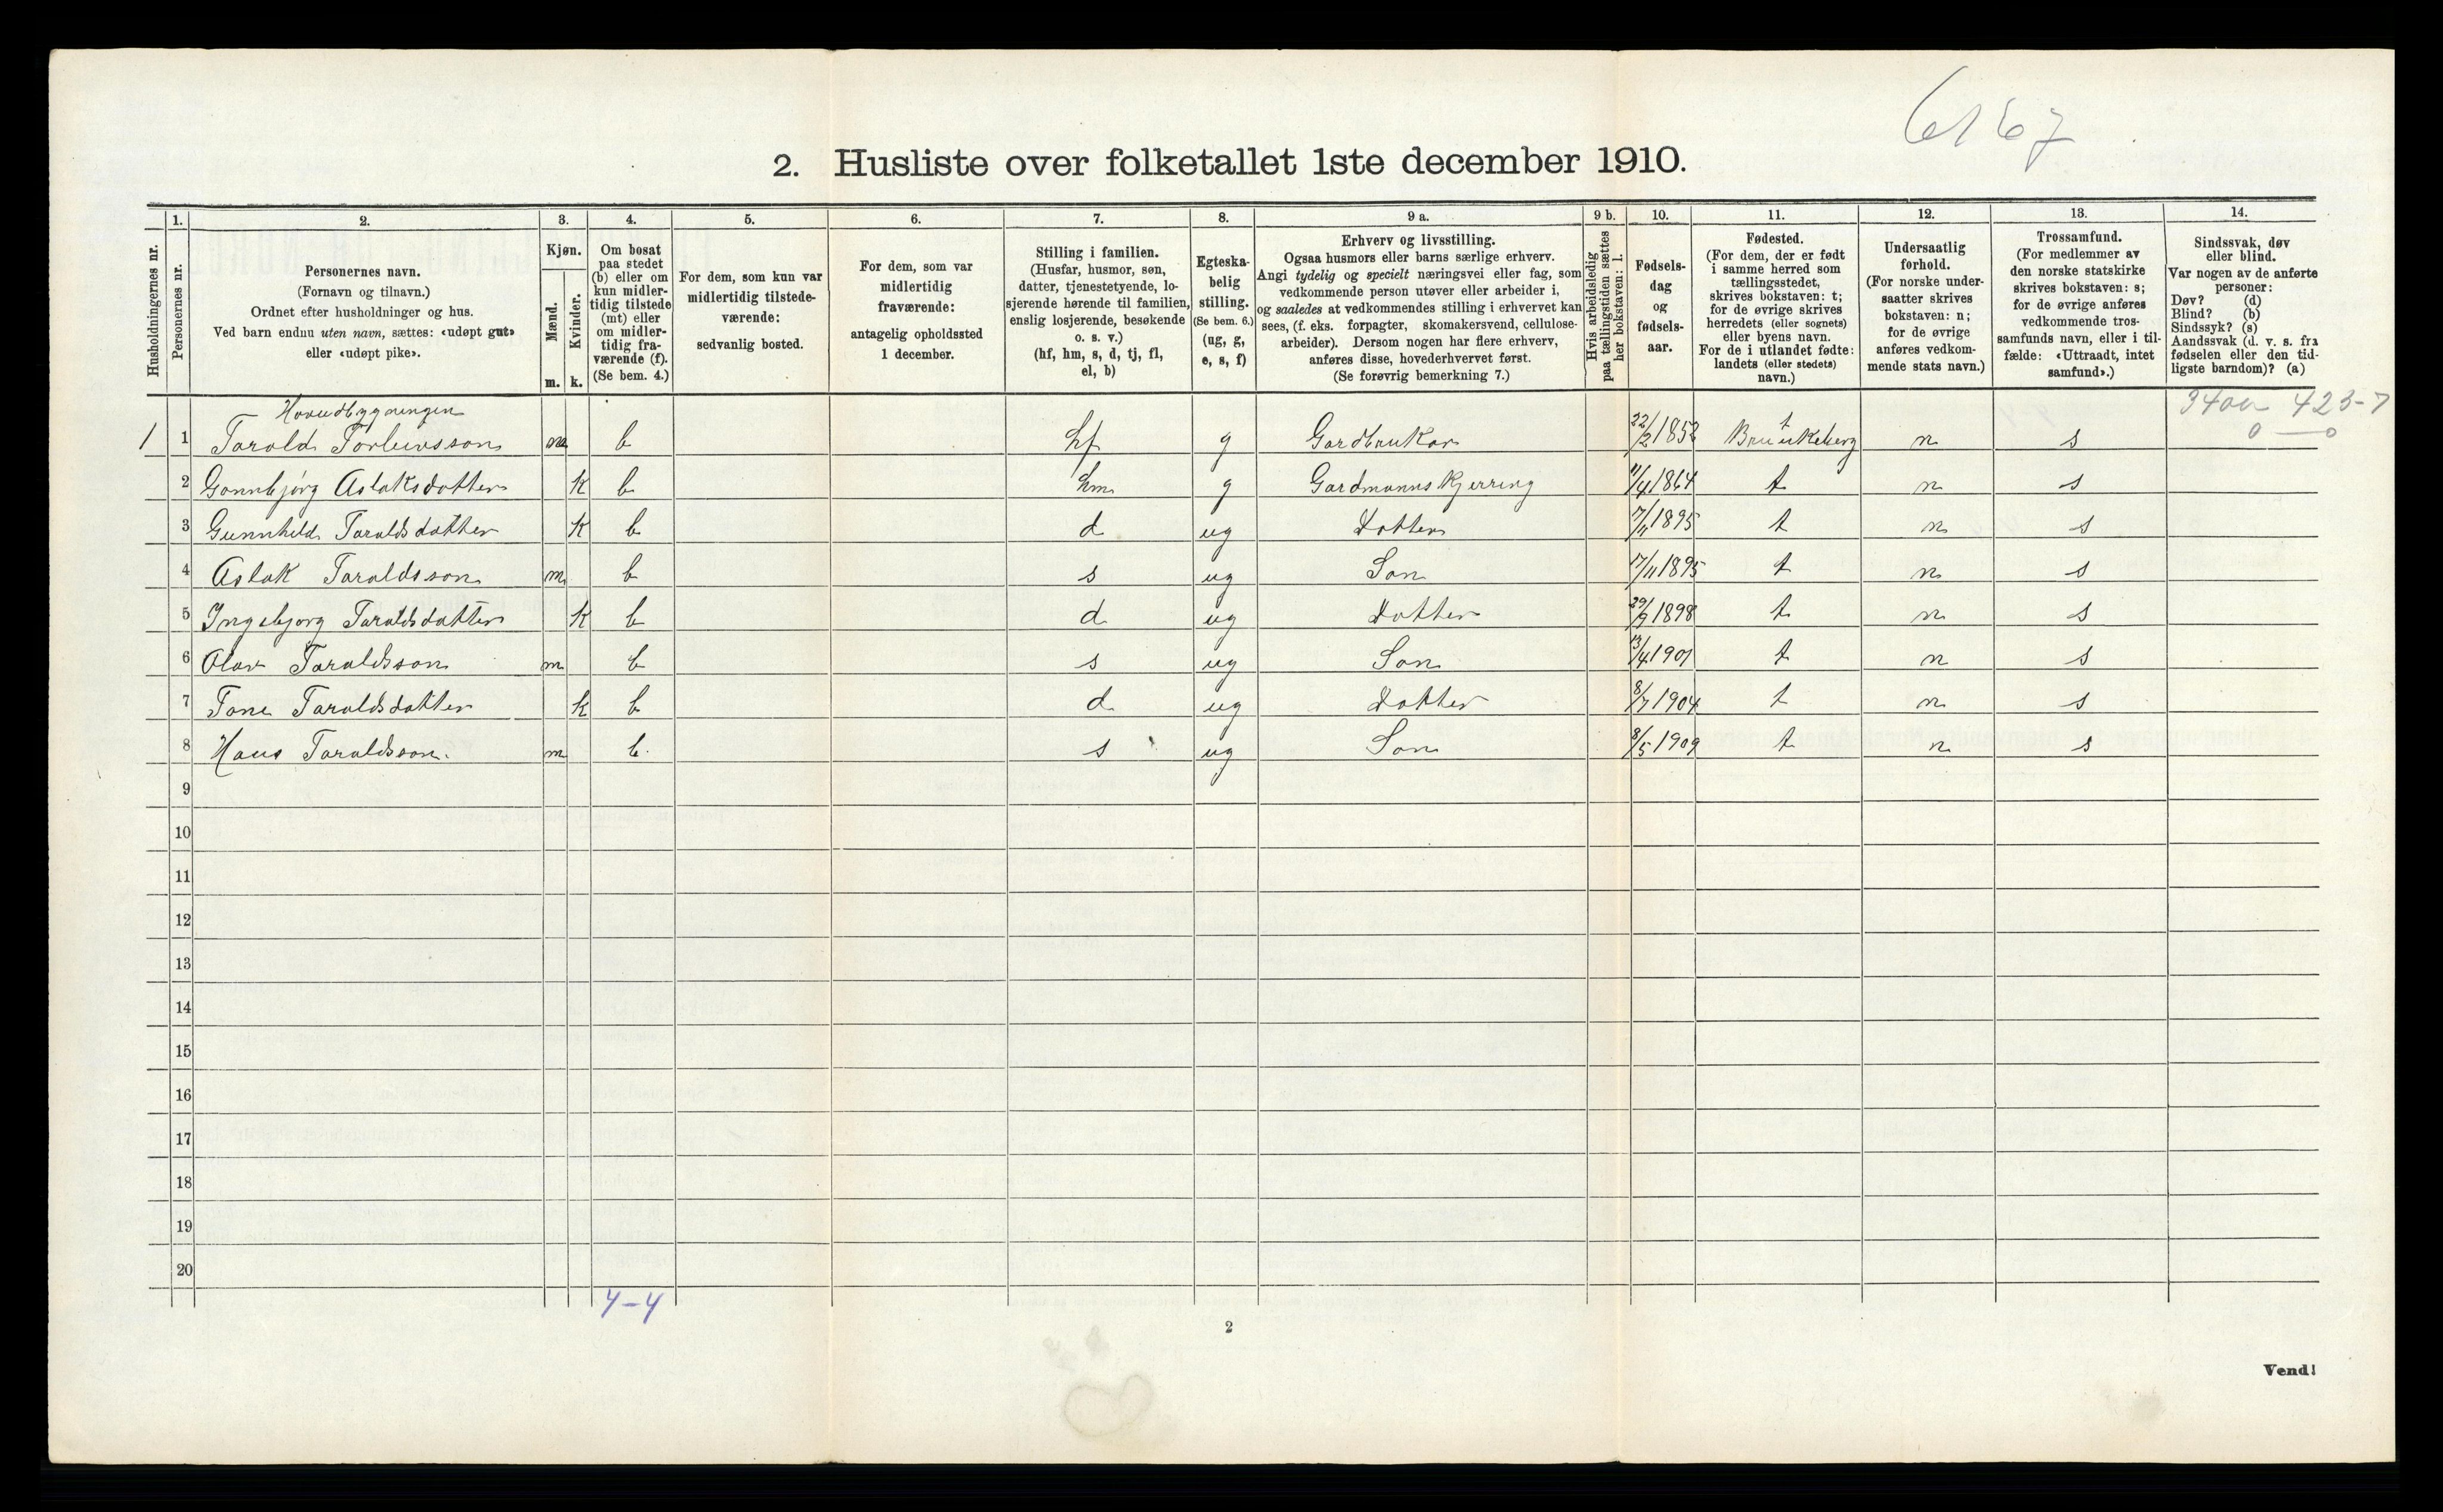 6167
2. Husliste over folketallet 1ste december 1910.
Husholdningernes nr.
1.
Personernes nr.
2.
Personernes navn.
(Fornavn og tilnavn.)
Ordnet efter husholdninger og hus.
Ved barn endnu uten navn, sættes: «udøpt gut»
eller «udøpt pike».
3.
Kjøn.
Mænd.
Kvinder.
m. k.
4.
Om bosat
paa stedet
(b) eller om
kun midler-
tidig tilstede
(mt) eller
om midler-
tidig fra-
værende (f).
(Se bem. 4.)
5.
For dem, som kun var
midlertidig tilstede-
værende:
sedvanlig bosted.
6.
For dem, som var
midlertidig
fraværende:
antagelig opholdssted
1 december.
7.
Stilling i familien.
(Husfar, husmor, søn,
datter, tjenestetyende, lo-
sjerende hørende til familien,
enslig losjerende, besøkende
o. s. v.)
(hf, hm, s, d, tj, fl,
el, b)
8.
Egteska-
belig
stilling.
(Se bem. 6.)
(ug, g,
e, s, f)
9 a.
Erhverv og livsstilling.
Ogsaa husmors eller barns særlige erhverv.
Angi tydelig og specielt næringsvei eller fag, som
vedkommende person utøver eller arbeider i,
og saaledes at vedkommendes stilling i erhvervet kan
sees, (f. eks. forpagter, skomakersvend, cellulose-
arbeider). Dersom nogen har flere erhverv,
anføres disse, hovederhvervet først.
(Se forøvrig bemerkning 7.)
9 b.
Hvis arbeidsledig
paa tællingstiden sættes
her bokstaven: l.
10.
Fødsels-
dag
og
fødsels-
aar.
11.
Fødested.
(For dem, der er født
i samme herred som
tællingsstedet,
skrives bokstaven: t;
for de øvrige skrives
herredets (eller sognets)
eller byens navn.
For de i utlandet fødte:
landets (eller stedets)
navn.)
12.
Undersaatlig
forhold.
(For norske under-
saatter skrives
bokstaven: n;
for de øvrige
anføres vedkom-
mende stats navn.)
13.
Trossamfund.
(For medlemmer av
den norske statskirke
skrives bokstaven: s;
for de øvrige anføres
vedkommende tros-
samfunds navn, eller i til-
fælde: «Uttraadt, intet
samfund».)
14.
Sindssvak, døv
eller blind.
Var nogen av de anførte
personer:
Døv? (d)
Blind? (b)
Sindssyk? (s)
Aandssvak (d. v. s. fra
fødselen eller den tid-
ligste barndom)? (a)
Hovudbygningen
423-7
0 — 0
1 1 Tarald Torleivsson m b hf g Gardbrukar 22/2 1852 t Brunkeberg n s
2 Gonnbjørg Aslaksdotter k b hm g Gardmannskjerring 11/4 1864 t n s
3 Gunnhild Taraldsdotter k b d ug Dotter 7/11 1895 t n s
4 Aslak Taraldsson m b s ug Son 17/11 1895 t n s
5 Ingebjorg Taraldsdotter k b d ug Dotter 29/9 1898 t n s
6 Olav Taraldsson m b s ug Son 13/4 1901 t n s
7 Tone Taraldsdotter k b d ug Dotter 8/7 1904 t n s
8 Hans Taraldsson. m b. s ug Son 8/5 1909 t n s
9
10
11
12
13
14
15
16
17
18
19
20
4-4
2
Vend!